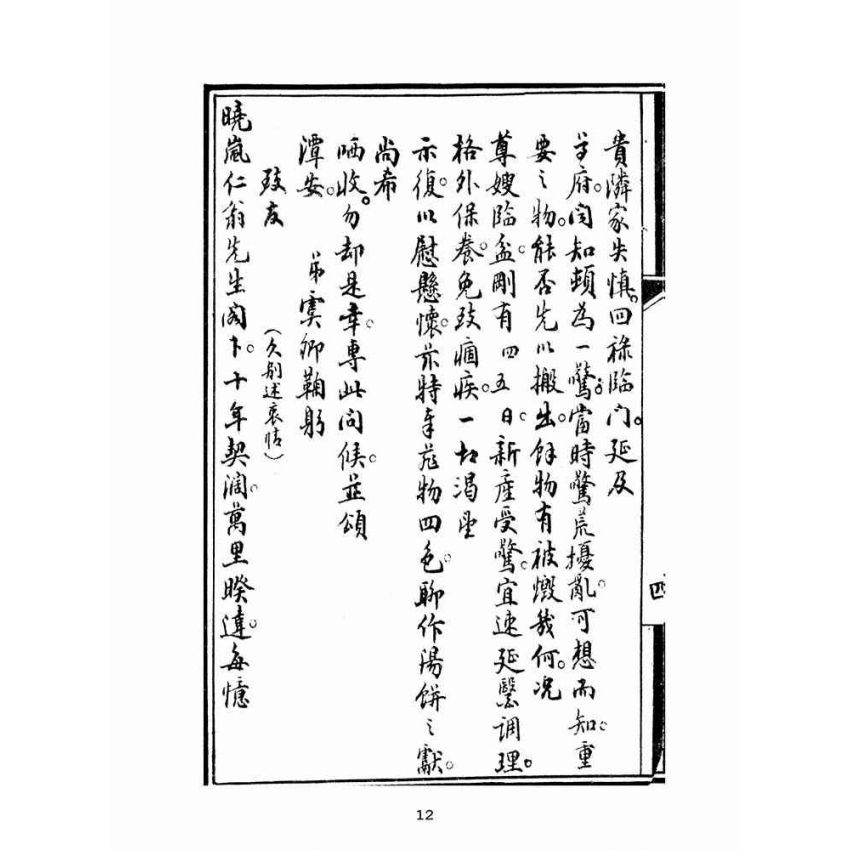 貴隣家失慎。回祿臨门。延及
貴府。闻知頗為一驚。當時驚荒擾亂。可想而知。重
要之物。能否先以搬出。餘物有被燬幾何。况
尊嫂臨盆。剛有四五日。新產受驚。宜速延醫調理。
格外保養。免致痼疾。一切渴望
示復。以慰懸懷。茲特奉菲物四色。聊作湯餅之獻。
尚希
哂收。勿却是幸。專此问候。並頌
潭安。
弟虞卿鞠躬
致友
(久別述衷情)
曉嵐仁翁先生阁下。十年契濶。萬里睽違。每憶
四
12